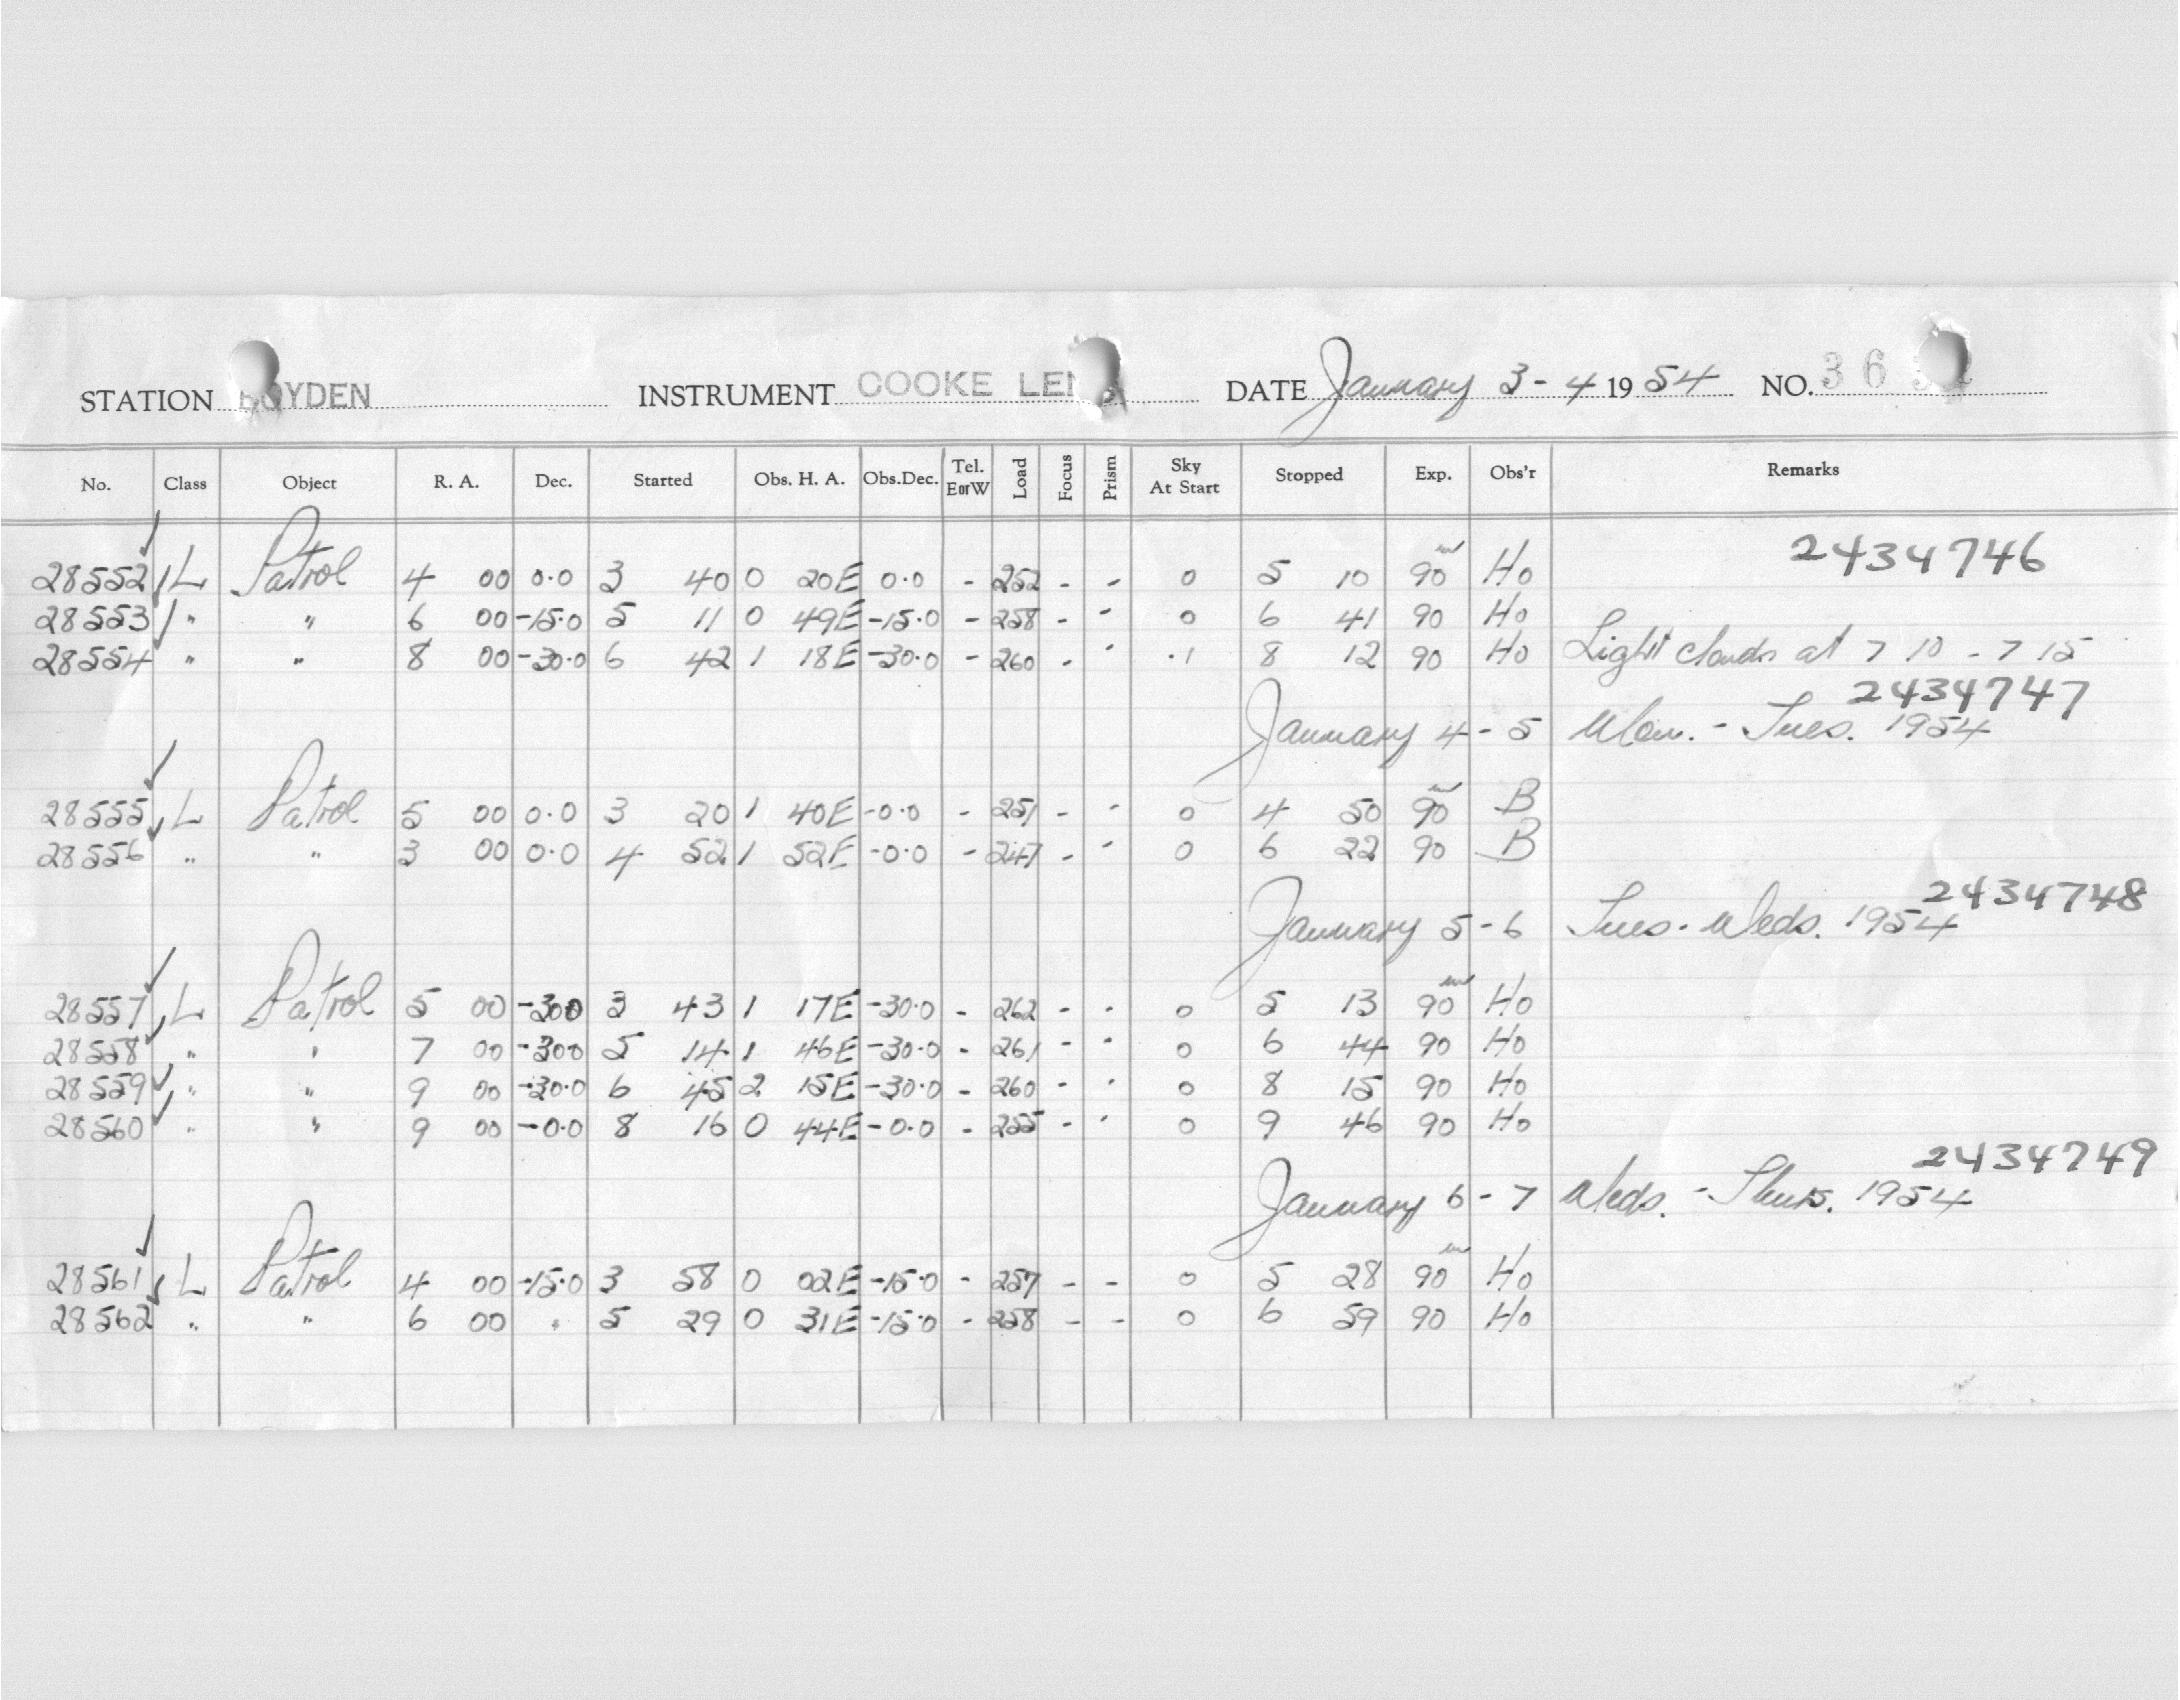 STATION BOYDEN INSTRUMENT COOKE LENS DATE January 3-4 1954 NO. 36
No. Class Object R. A. Dec. Started Obs. H. A. Obs.Dec. Tel. E or W Load Focus Prism Sky At Start Stopped Exp. Obs'r Remarks
2434746
28552 L Patrol 4 00 0.0 3 40 0 20E 0.0 - 252 - - 0 5 10 90m Ho
28553 " " 6 00 -15.0 5 11 0 49E -15.0 - 258 - - 0 6 41 90 Ho
28554 " " 8 00 -30.0 6 42 1 18E -30.0 - 260 - - .1 8 12 90 Ho Light clouds at 7 10 - 7 15
2434747
January 4-5 Mon. - Tues. 1954
28555 L Patrol 5 00 0.0 3 20 1 40E -0.0 - 251 - - 0 4 50 90m B
28556 " " 3 00 0.0 4 52 1 52E -0.0 - 247 - - 0 6 22 90 B
2434748
January 5-6 Tues. Weds. 1954
28557 L Patrol 5 00 -30.0 3 43 1 17E -30.0 - 262 - - 0 5 13 90m Ho
28558 " " 7 00 -30.0 5 14 1 46E -30.0 - 261 - - 0 6 44 90 Ho
28559 " " 9 00 -30.0 6 45 2 15E -30.0 - 260 - - 0 8 15 90 Ho
28560 " " 9 00 -0.0 8 16 0 44E -0.0 - 255 - - 0 9 46 90 Ho
2434749
January 6-7 Weds. - Thurs. 1954
28561 L Patrol 4 00 -15.0 3 58 0 02E -15.0 - 257 - - 0 5 28 90m Ho
28562 " " 6 00 " 5 29 0 31E -15.0 - 258 - - 0 6 59 90 Ho